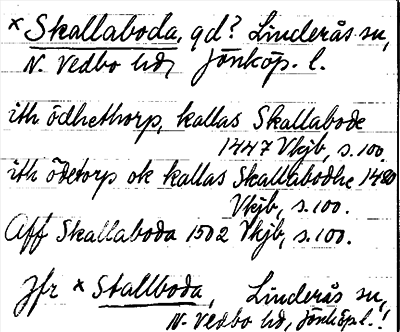 × Skallaboda, gd? Linderås sn,
N. Vedbo hd, Jönköp. l.
ith ödhethorp, kallas Skallabode
1447 Vkjb, s. 100.
ith ödetorp ok kallas Skallabodhe 1480
Vkjb, s. 100.
Aff Skallaboda 1502 Vkjb, s. 100.
Jfr × Stallboda, Linderås sn,
N. Vedbo hd, Jönköp. l.!